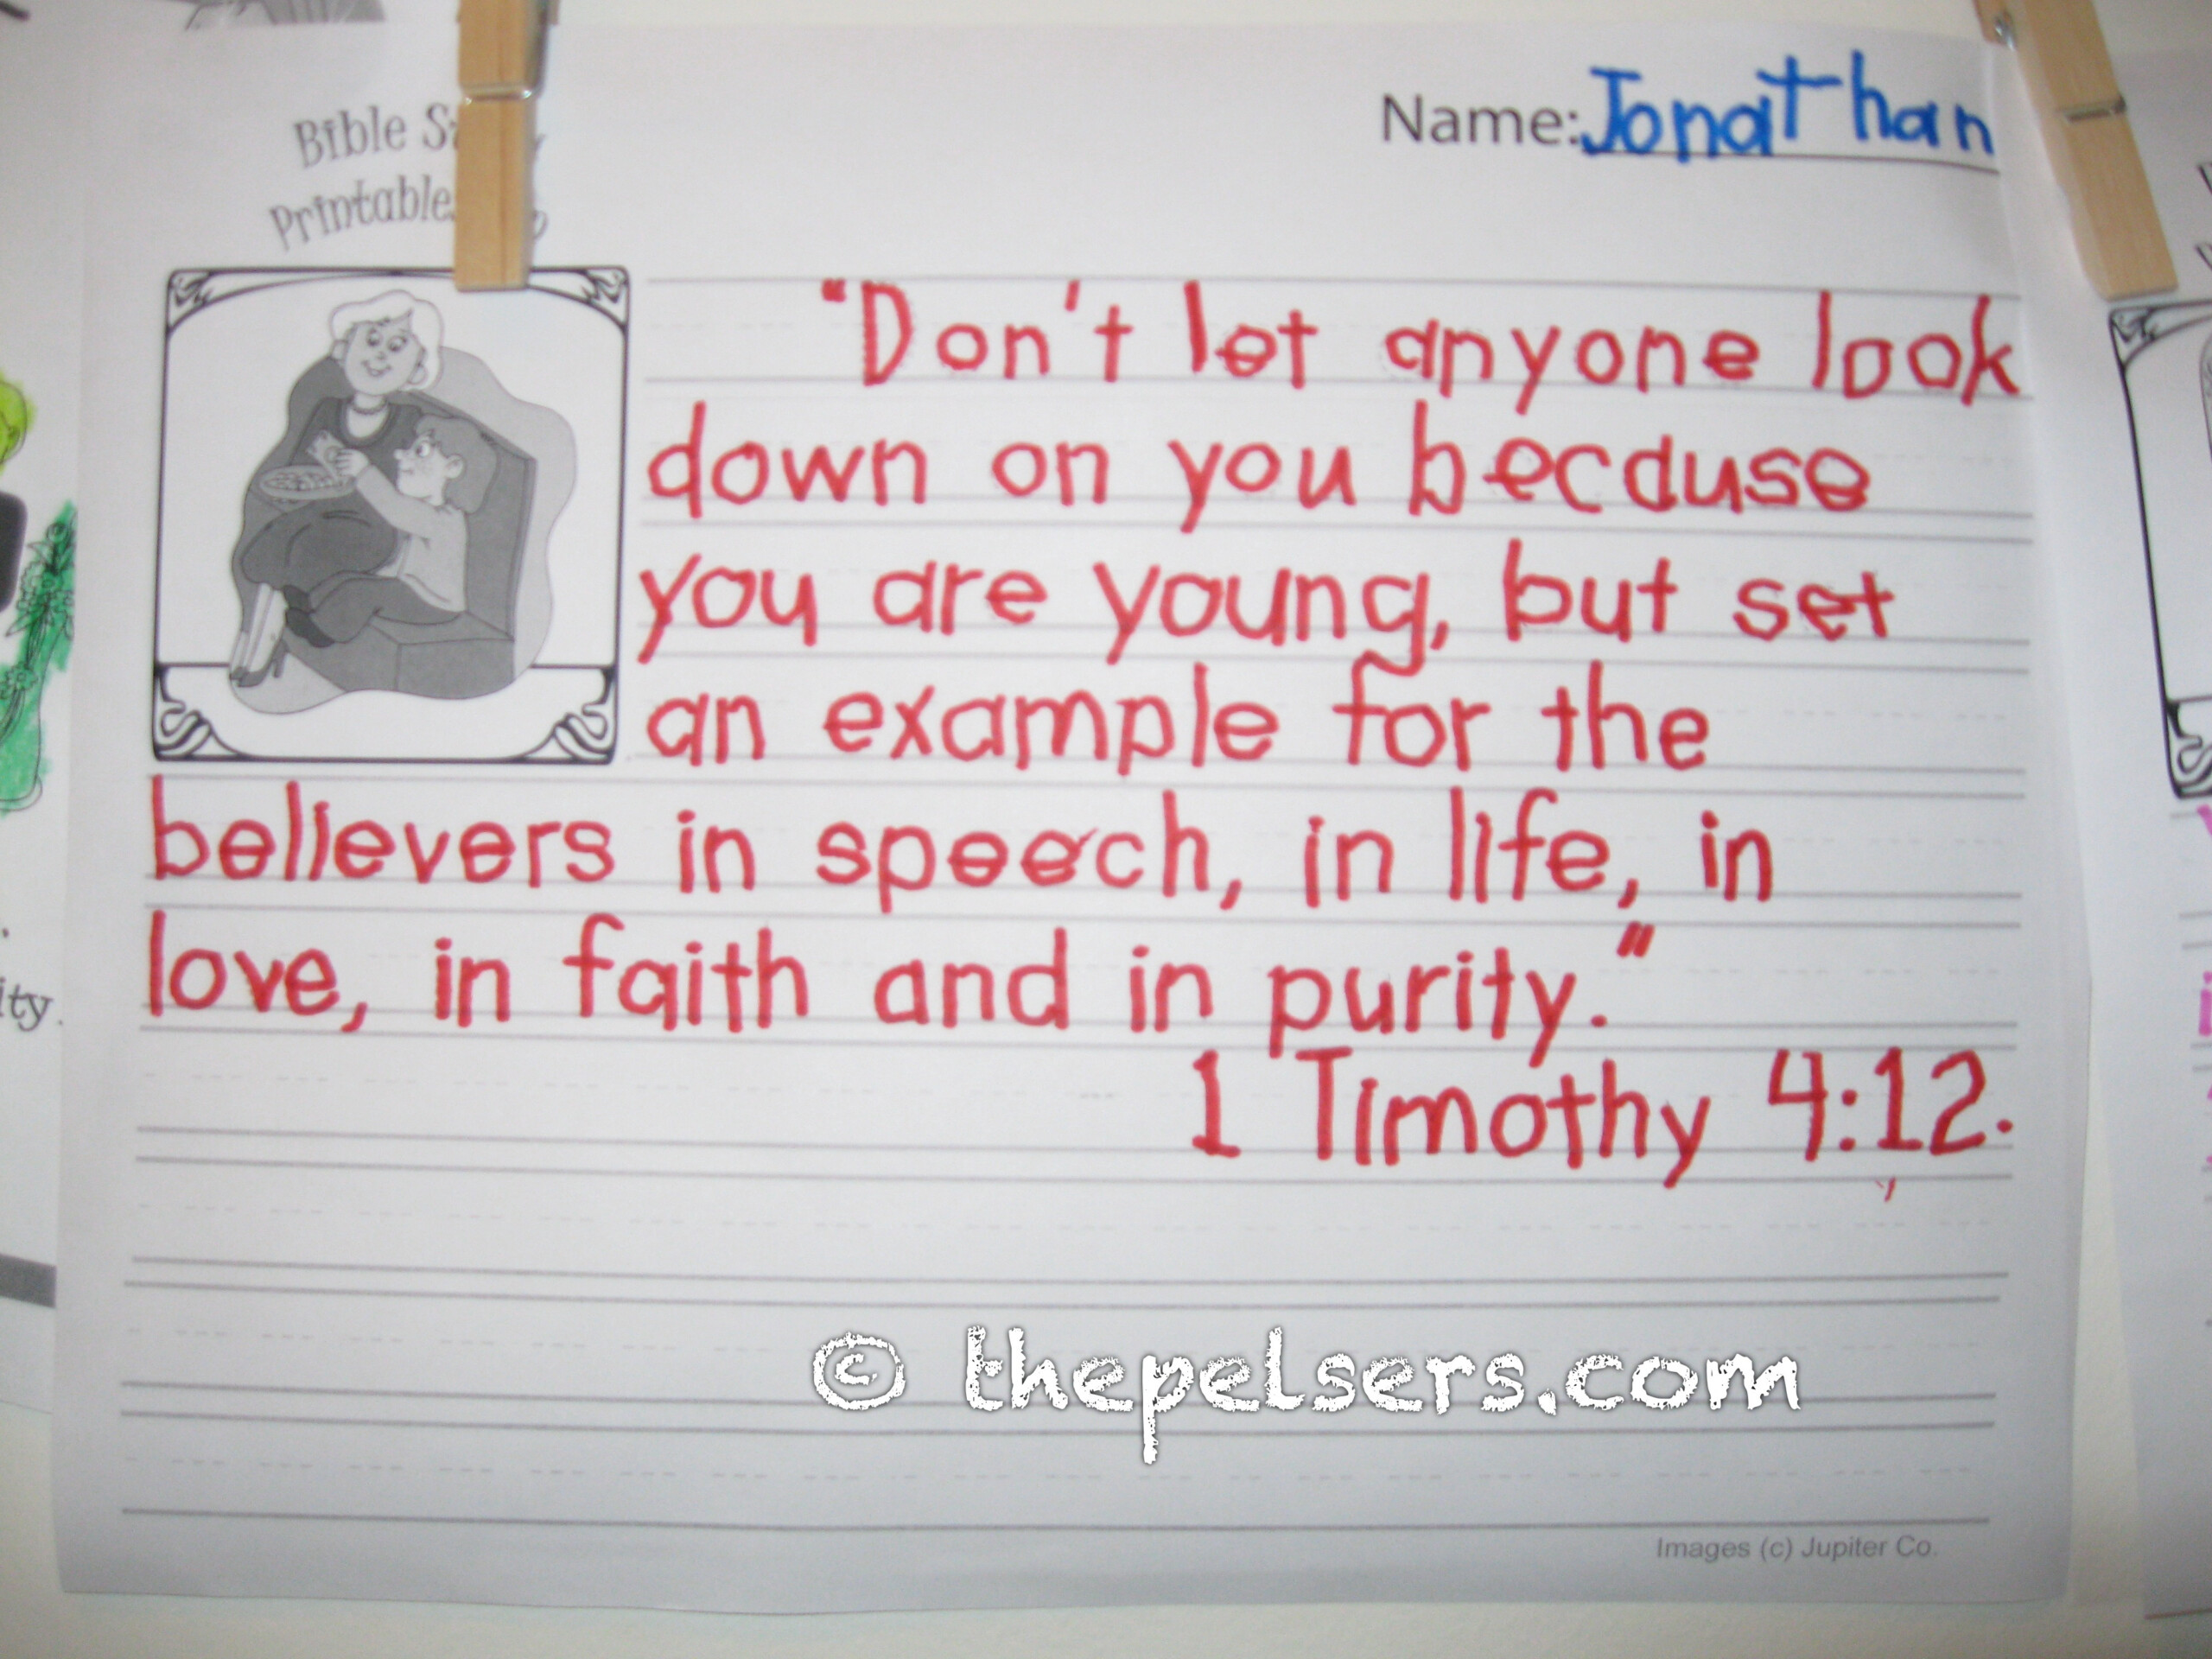 Bible
Name: Jonathan
"Don't let anyone look
down on you because
you are young, but set
an example for the
believers in speech, in life, in
love, in faith and in purity."
1 Timothy 4:12.
© thepelsers.com
Images (c) Jupiter Co.